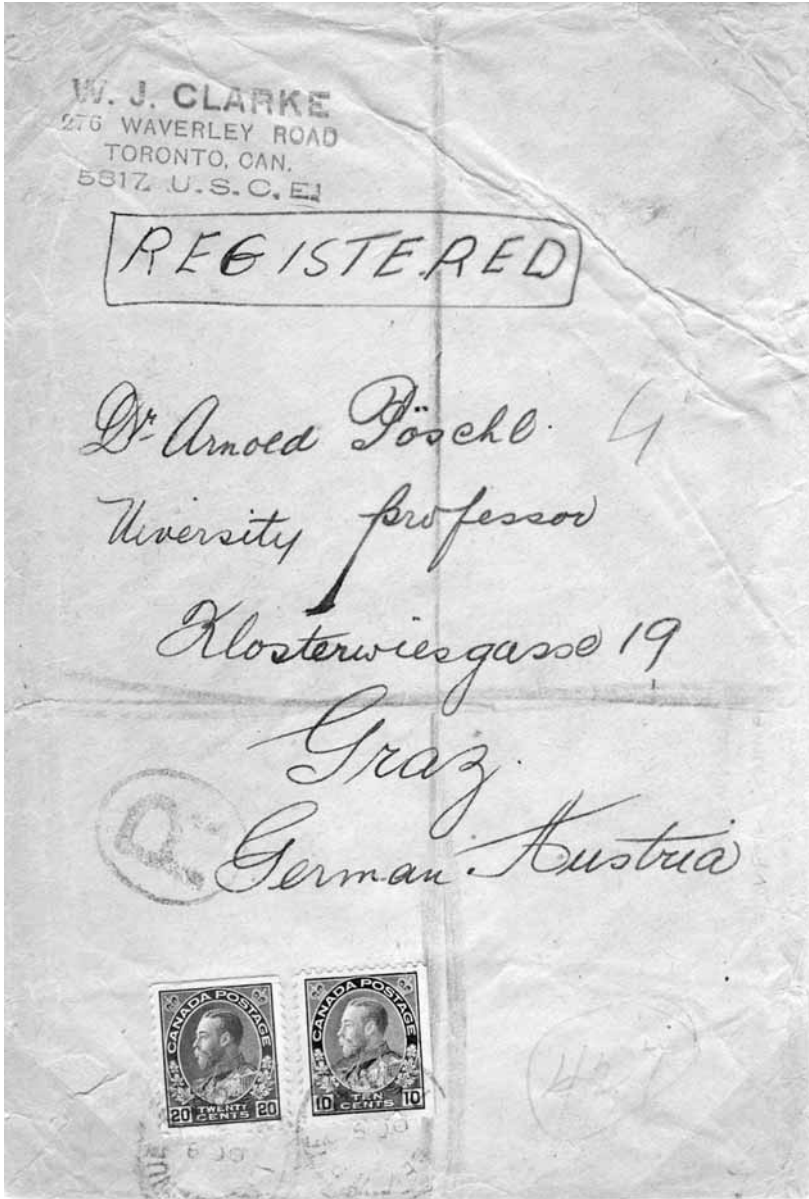 W. J. CLARKE
276 WAVERLEY ROAD
TORONTO, CAN.
5817 U.S.C.E.
REGISTERED
Dr. Arnold Pöschl.
University professor
Klosterwiesgasse 19
Graz.
German. Austria
R
CANADA POSTAGE
20 TWENTY CENTS 20
CANADA POSTAGE
10 TEN CENTS 10